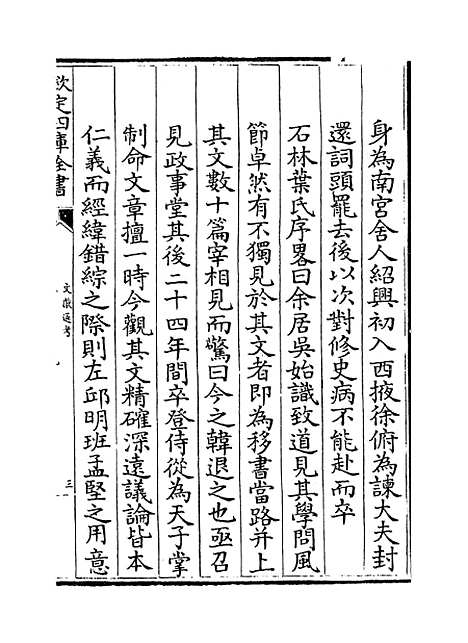 身為南宮舍人紹興初入西掖徐俯為諫大夫封
還詞頭罷去後以次對修史病不能赴而卒
石林葉氏序畧曰余居吳始識致道見其學問風
節卓然有不獨見於其文者即為移書當路并上
其文數十篇宰相見而驚曰今之韓退之也亟召
見政事堂其後二十四年間卒登侍從為天子掌
制命文章擅一時今觀其文精確深遠議論皆本
仁義而經緯錯綜之際則左邱明班孟堅之用意
欽定四庫全書
文獻通考